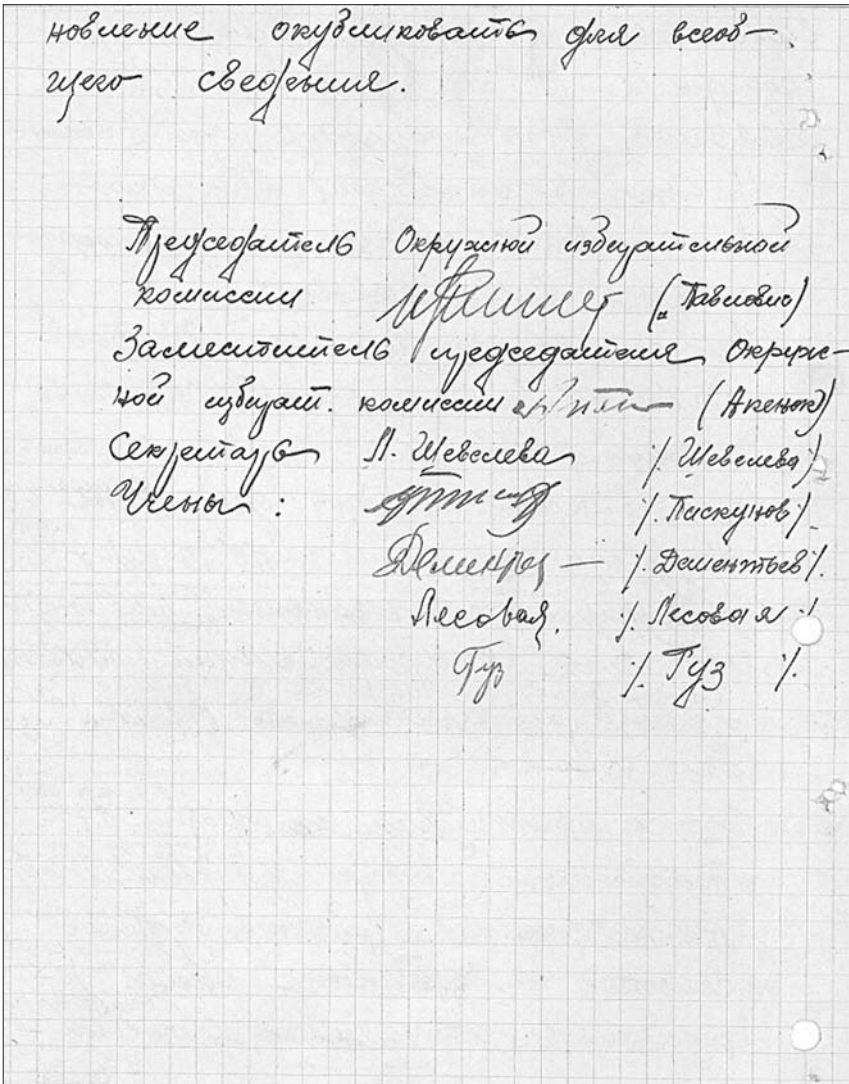 новление опубликовать для всеоб-
щего сведения.
Председатель Окружной избирательной
комиссии (Павлович)
Заместитель председателя Окруж-
ной избират. комиссии (Акенюк)
Секретарь Л. Шевелева /. Шевелева /.
Члены : /. Пискунов /.
Дементьев — /. Дементьев /.
Лесовая. /. Лесовая /.
Гуз /. Гуз /.